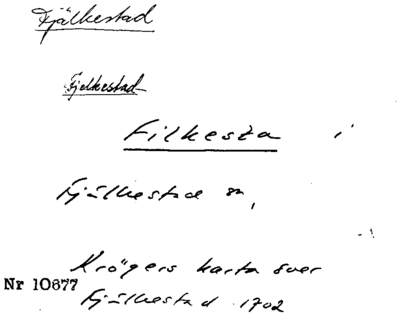 Fjälkestad
Fjelkestad
Filkesta i
Fjälkestad sn,
Krögers karta över
Nr 10677
Fjälkestad 1702